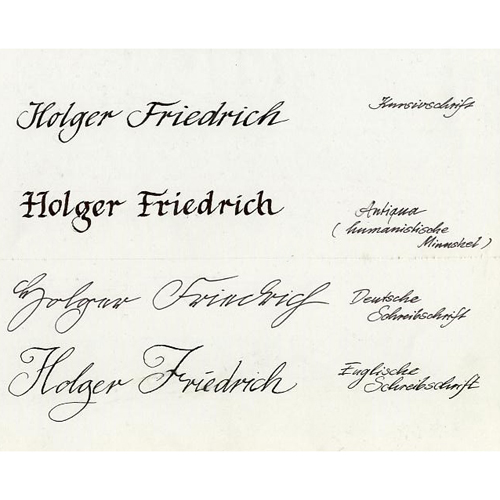 Holger Friedrich Kursivschrift
Holger Friedrich Antiqua
(humanistische
Minuskel)
Holger Friedrich Deutsche
Schreibschrift
Holger Friedrich Englische
Schreibschrift